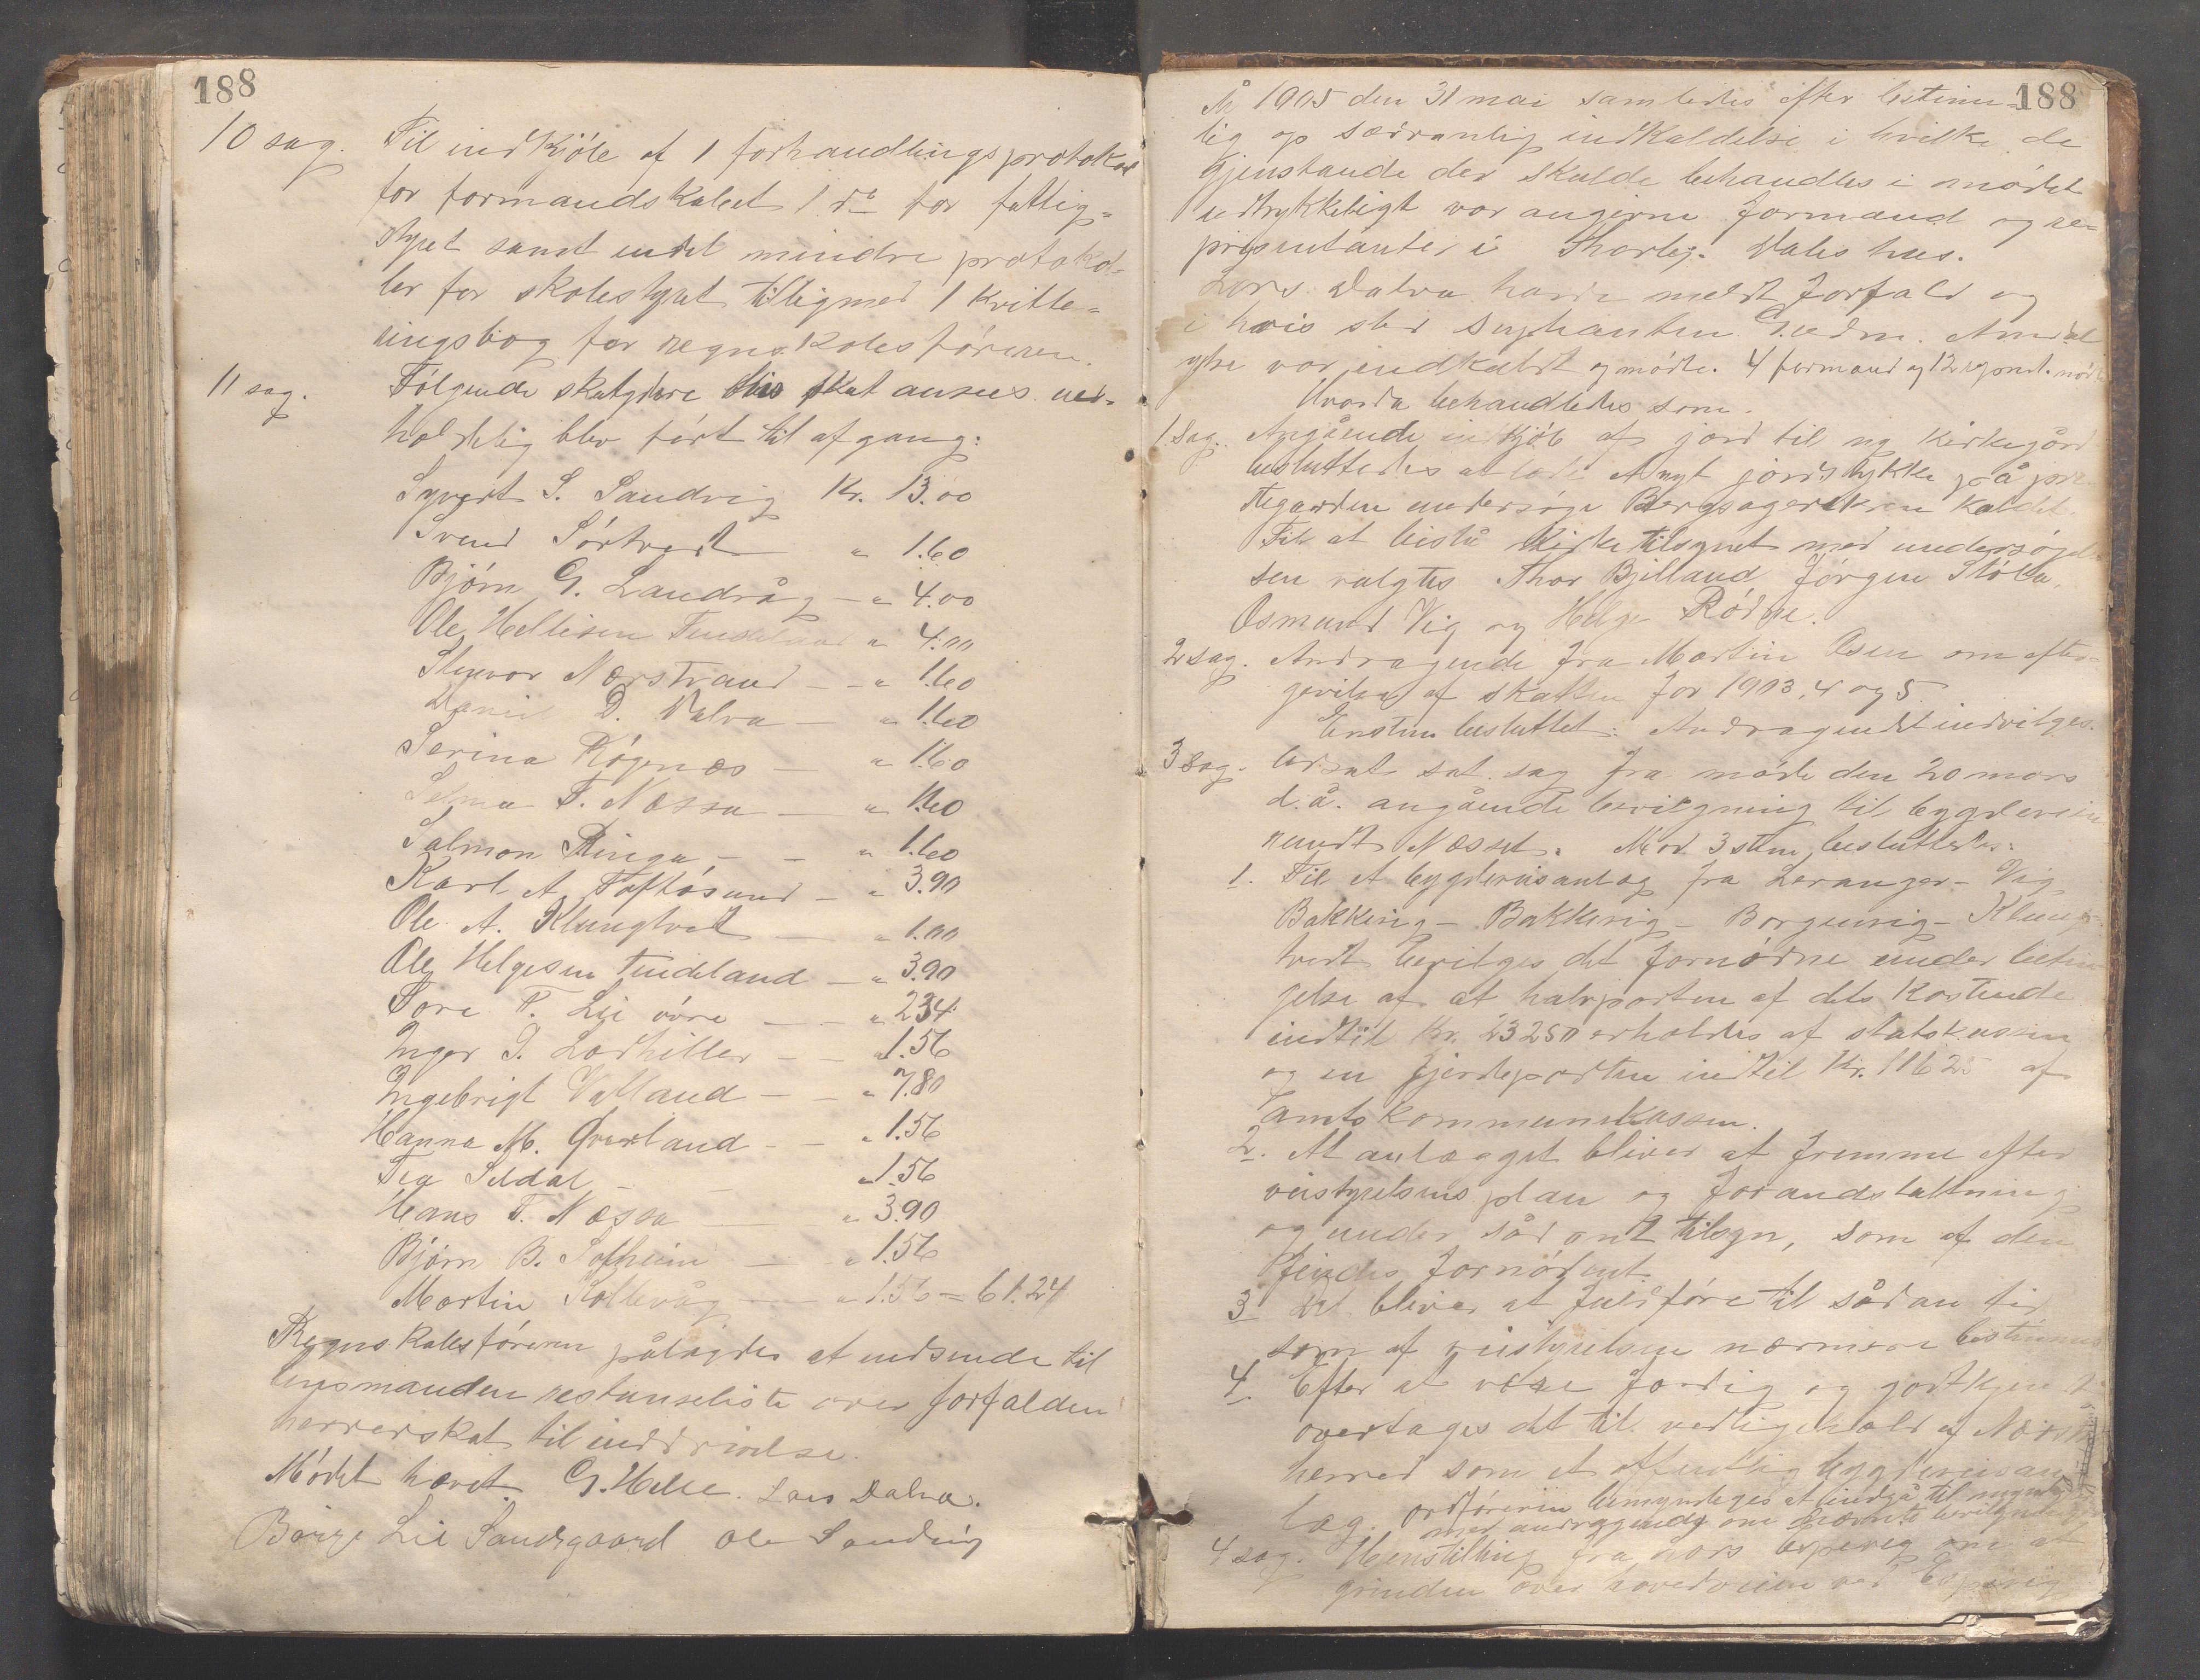 188
10 sag. Til indkjöb af 1 forhandlingsprotokol
for formandskabet 1 do for fattig=
styret samt endel mindre protokol=
ler for skolestyret tilligmed 1 kvitte=
ringsbog for regnskabsföreren.
11 sag. Fölgende skatydere hvis skat ansees uer=
holdelig blev fört til afgang:
Syvert S. Sandvig Kr. 13.00
Svend Sörtvedt " 1.60
Björn G. Landråg — " 4.00
Ole Hellisen Tindeland " 4.00
Steinvor Nærstrand — — " 1.60
Daniel D. Valva — " 1.60
Serina Rögenæs — " 1.60
Selma T. Næssa — " 1.60
Salmon Ringa — — " 1.60
Karl A. Toftösund — " 3.90
Ole A. Klungtvedt — " 1.00
Ole Helgesen Tindeland — " 3.90
Tore T. Lie övre — — " 2.34
Inger T. Lodhiller — — " 1.56
Ingebrigt Valland — — " 7.80
Hanna M. Överland — — " 1.56
Tea Seldal — — " 1.56
Hans T. Næssa — " 3.90
Björn B. Solheim — " 1.56
Martin Kollevåg — " 1.56 = 61.24
Regnskabsföreren pålagdes at indsende til
lensmanden restanseliste over forfalden
herredsskat til inddrivelse.
Mödet hævet. G. Helle. Lars Dalva.
Börge Lie Sandsgaard Ole Sandvig
188
År 1905 den 31 mai samledes efter lovlig
og sædvanlig indkaldelse i hvilke de
gjenstande der skulde behandles i mödet
udtrykkeligt var angivne formænd og re=
præsentanter i Thorleg. Vales hus.
Lars Dalva havde meldt forfald og
i hvis sted suplianten Gudm. Amdal
ytre var indkaldt og mödte. 4 formænd og 12 repræst. mödt
Hvorda behandledes som.
1 sag. Angående indkjöb af jord til ny kirkegård
besluttedes at lade et nyt jordstykke på præ
stegarden undersöge Bergsagerekren kaldet.
Til at bistå kirketilsynet med undersögel
sen valgtes Thor Bjelland, Jörgen Stöle,
Osmund Vig og Helge Rödne.
2 sag. Andragende fra Martin Åsen om efter=
givelse af skatten for 1903, 4 og 5.
Enstem. besluttet: Andragendet indvilges.
3 sag. Udsat sat. sag fra möde den 20 mars
d.å. angående bevilgning til bygdeveien
rundt Næsset. Mod 3 stem. besluttedes:
1. Til et bygdeveisanlæg fra Leranger — Vig
Bakkevig — Bakkevig — Borgenvig — Klung
tvedt bevilges det fornödne under betin
gelse af at halvparten af dets kostende
indtil kr. 23250 erholdes af statskassen
og en fjerdeparten indtil kr. 11625 af
amtskommunekassen.
2. At anlægget bliver at fremme efter
veistyrelsens plan og foranstaltning
og under sådant tilsyn, som af den
findes fornödent.
3. Det bliver at fuldföre til sådan tid
som af veistyrelsen nærmere bestemmes
4. Efter at være færdig og godkjendt
overtages det til vedligehold af Nærst
herred som et offentlig bygdeveian
læg. Ordföreren bemyndiges at indgå til myndig
med andragende om nævnte bevilgning
4 sag. Henstilling fra Lars Espevig om at
grinden over hovedveien ved Espevig